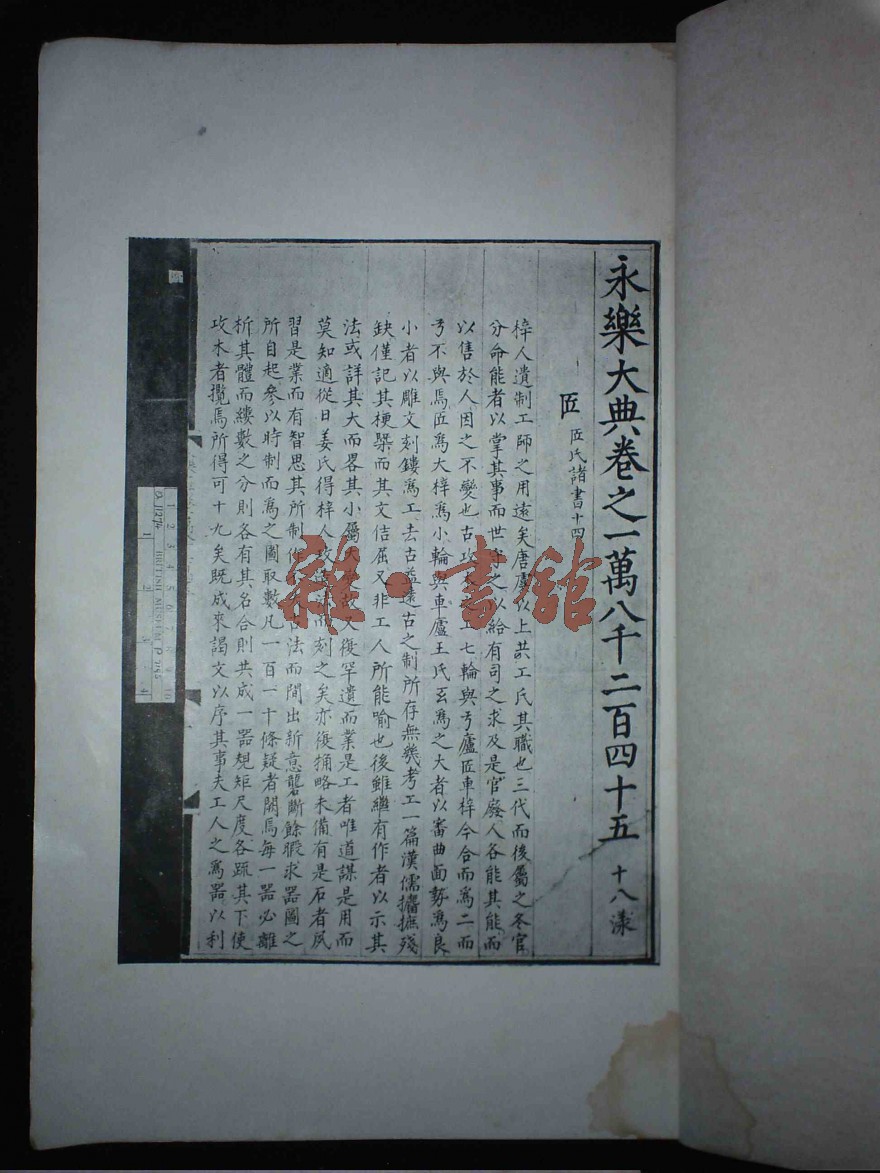 永樂大典卷之一萬八千二百四十五 十八漾
匠 匠氏諸書十四
梓人遺制工師之用遠矣唐虞以上共工氏其職也三代而後屬之冬官
分命能者以掌其事而世守之以給有司之求及是官廢人各能其能而
以售於人因之不變也古攻木之工七輪輿弓廬匠車梓今合而爲二而
弓不與焉匠爲大梓爲小輪輿車廬王氏云爲之大者以審曲面勢爲良
小者以雕文刻鏤爲工去古益遠古之制所存無幾考工一篇漢儒攟摭殘
缺僅記其梗槩而其文佶屈又非工人所能喻也後雖繼有作者以示其
法或詳其大而畧其小屬大變故又復罕遺而業是工者唯道謀是用而
莫知適從日姜氏得梓人攻造法而刻之矣亦復觕略未備有是石者夙
習是業而有智思其所制作 古法而間出新意礱斷餘暇求器圖之
所自起參以時制而爲之圖取數凡一百一十條疑者闕焉每一器必離
析其體而縷數之分則各有其名合則共成一器規矩尺度各疏其下使
攻木者攬焉所得可十九矣既成來謁文以序其事夫工人之爲器以利
雜·書館
BRITISH MUSEUM